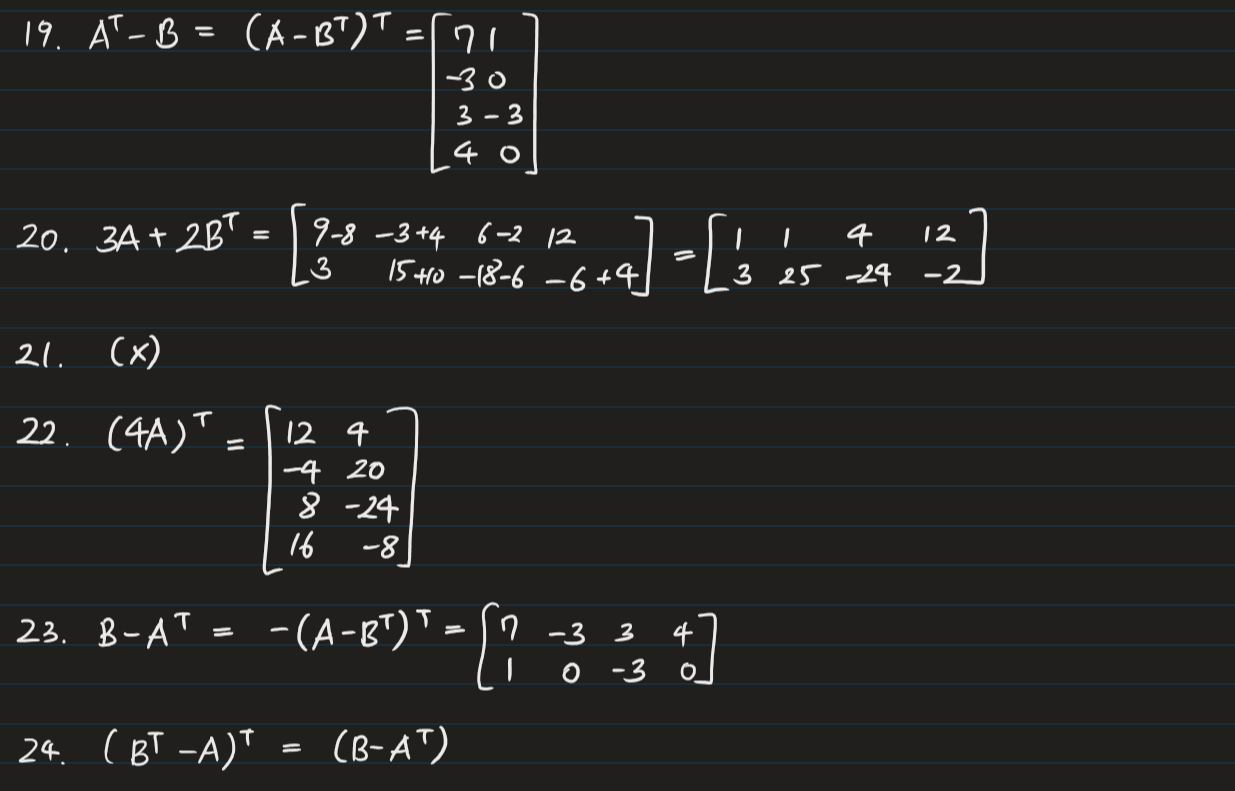 19. Aᵀ - B = (A - Bᵀ)ᵀ = [ 7 1
-3 0
3 -3
4 0 ]
20. 3A + 2Bᵀ = [ 9-8 -3+4 6-2 12 ] = [ 1 1 4 12 ]
[ 3 15+10 -18-6 -6+4 ] [ 3 25 -24 -2 ]
21. (x)
22. (4A)ᵀ = [ 12 4
-4 20
8 -24
16 -8 ]
23. B - Aᵀ = -(A - Bᵀ)ᵀ = [ 7 -3 3 4
1 0 -3 0 ]
24. (Bᵀ - A)ᵀ = (B - Aᵀ)